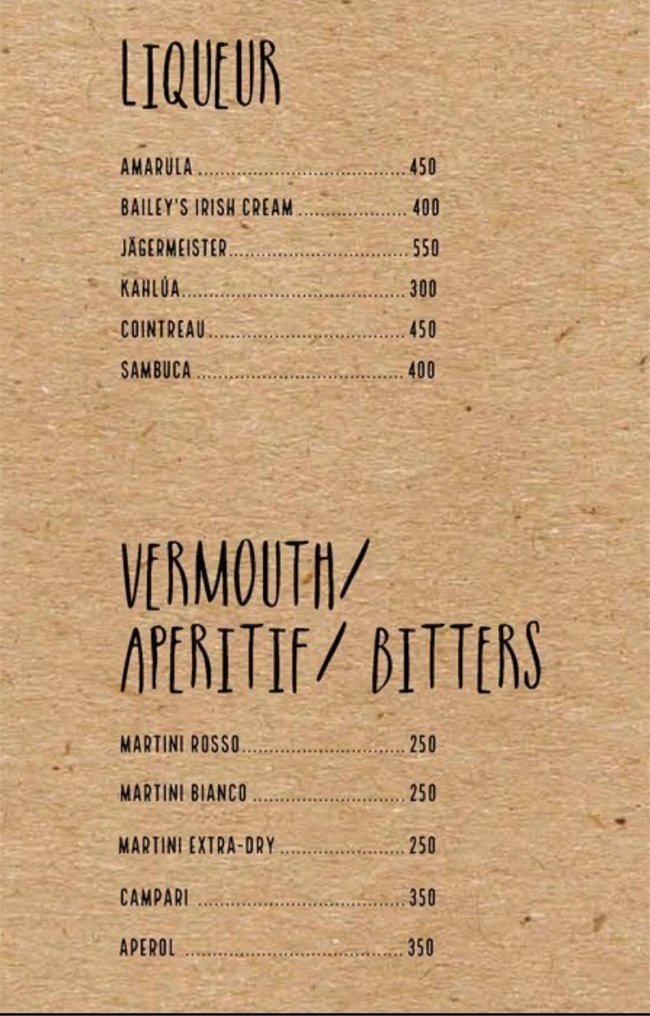 LIQUEUR
AMARULA ........................................ 450
BAILEY'S IRISH CREAM ..................... 400
JÄGERMEISTER................................... 550
KAHLÚA........................................... 300
COINTREAU...................................... 450
SAMBUCA ........................................ 400
VERMOUTH/
APERITIF/ BITTERS
MARTINI ROSSO................................ 250
MARTINI BIANCO .............................. 250
MARTINI EXTRA-DRY ........................ 250
CAMPARI ........................................ 350
APEROL .......................................... 350